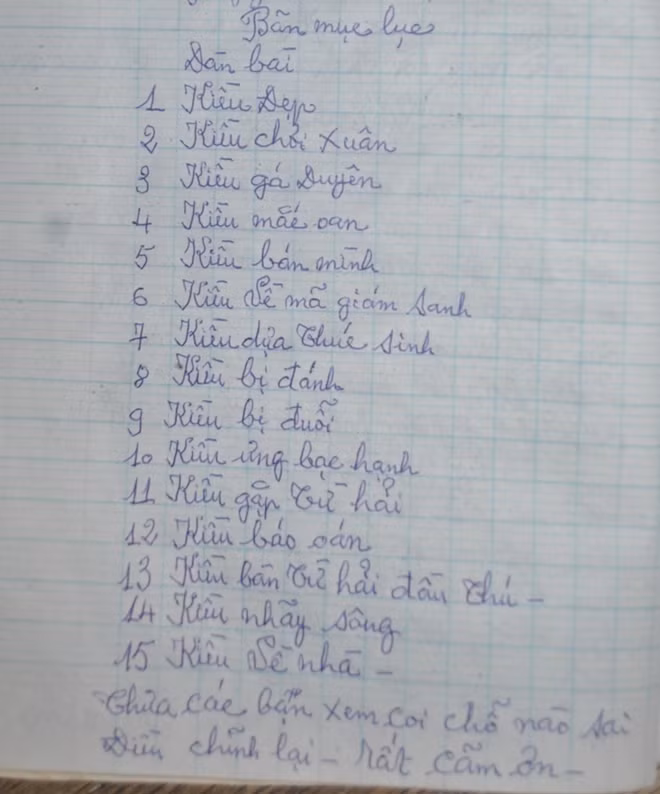 Bãn mục lục
Dàn bài
1 Kiều Đẹp
2 Kiều chơi xuân
3 Kiều gá Duyên
4 Kiều mắc oan
5 Kiều bán mình
6 Kiều Về mã giám sanh
7 Kiều dựa Thúc sinh
8 Kiều bị đánh
9 Kiều bị đuỗi
10 Kiều ưng bạc hạnh
11 Kiều gặp Từ hải
12 Kiều báo oán
13 Kiều bàn Từ hải đầu thú -
14 Kiều nhãy sông
15 Kiều Về nhà -
Thưa các bạn xem coi chỗ nào sai
Điều chĩnh lại - rất cãm ơn -